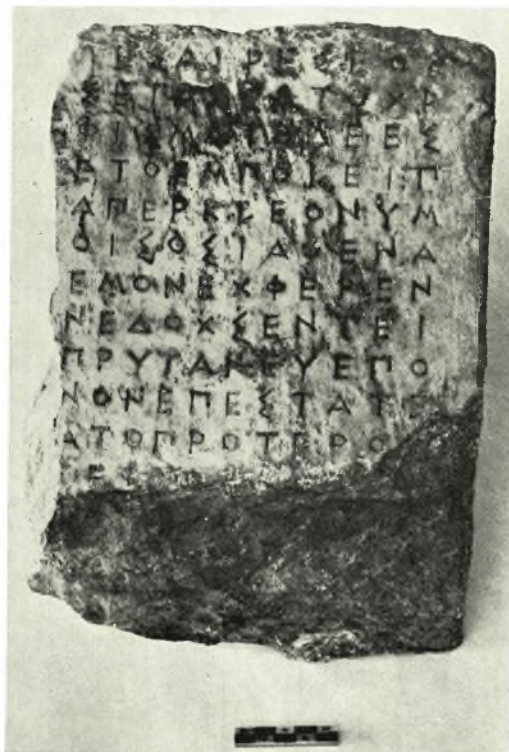 ΕΧΑΙΡΕ
ΑΤΟΧΡ
ΦΙΣΜΑΤΟΔΕΕΣ
ΥΤΟΕΜΠΟΛΕΙΠ
ΑΠΕΡΚΛΕΟΝΥΜ
ΟΙΣΟΣΙΑΘΕΝΑ
ΕΜΟΝΕΧΦΕΡΕΝ
ΝΕΔΟΧΣΕΝΤΕΙ
ΠΡΥΤΑΝΕΥΕΠΟ
ΝΟΝΕΠΕΣΤΑΤΕ
ΑΤΟΠΡΟΤΕΡΟ